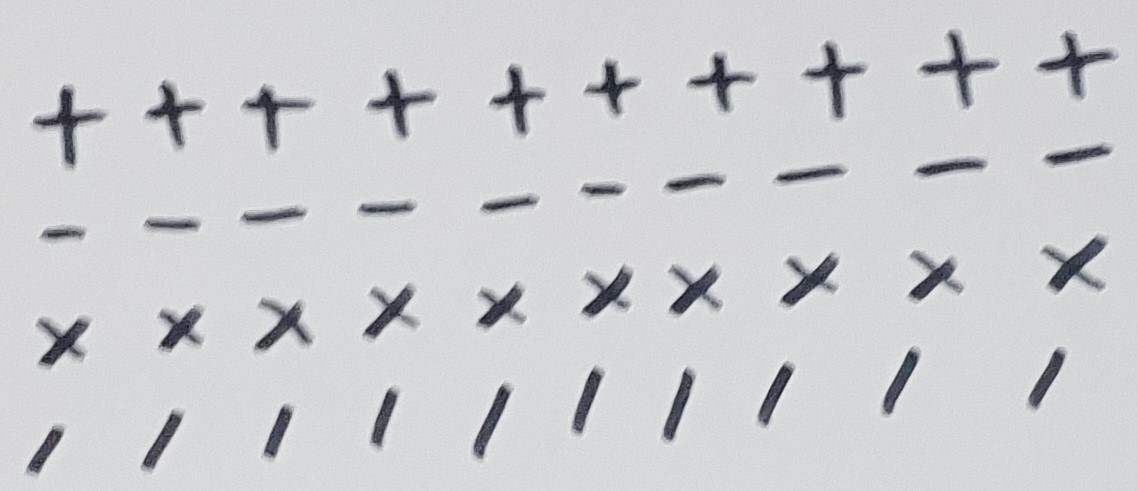 + + + + + + + + + +
- - - - - - - - - -
× × × × × × × × × ×
/ / / / / / / / / /